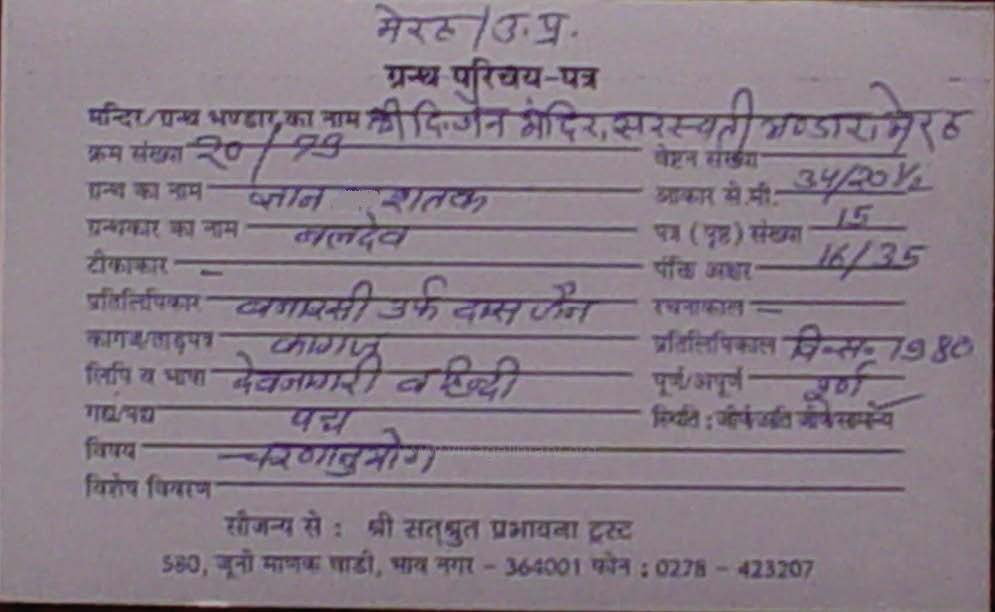 मेरठ/उ.प्र.
ग्रन्थ परिचय-पत्र
मन्दिर/ग्रन्थ भण्डार का नाम श्री दि. जैन मंदिर, सरस्वती भण्डार, मेरठ
क्रम संख्या 20/ वेष्टन संख्या
ग्रन्थ का नाम ज्ञान शतक आकार से.मी. 34/20½
ग्रन्थकार का नाम बलदेव पत्र (पृष्ठ) संख्या 15
टीकाकार — पंक्ति अक्षर 16/35
प्रतिलिपिकार बनारसी उर्फ दास जैन रचनाकाल —
कागज/ताड़पत्र कागज प्रतिलिपिकाल वि.सं. 1980
लिपि व भाषा देवनागरी व हिन्दी पूर्ण/अपूर्ण पूर्ण
गद्य/पद्य पद्य स्थिति : जीर्ण/अति जीर्ण/सामान्य
विषय चरणानुयोग
विशेष विवरण
सौजन्य से : श्री सत्श्रुत प्रभावना ट्रस्ट
580, जूनी माणक वाडी, भाव नगर - 364001 फोन : 0278 - 423207